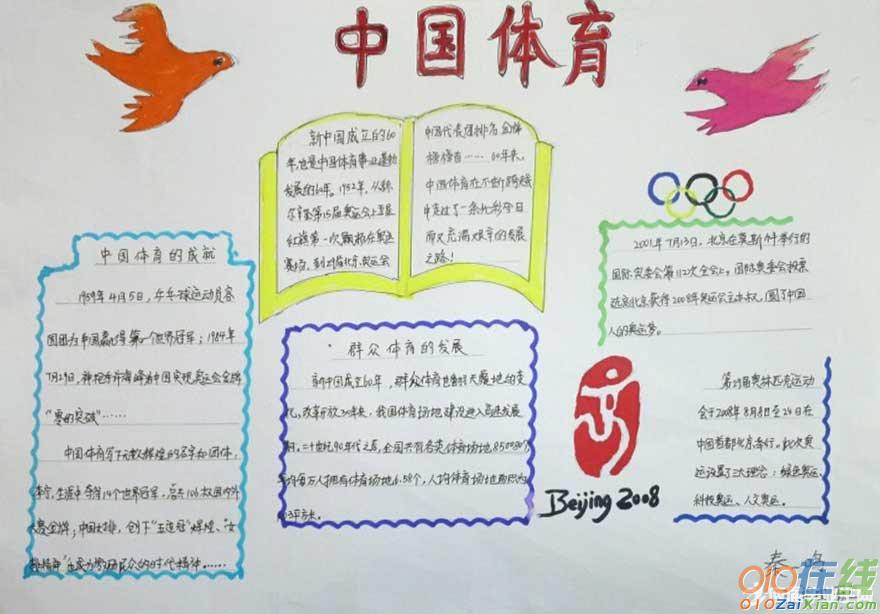 中国体育
新中国成立的60
年,也是中国体育事业蓬勃
发展的60年。1952年,从赫
尔辛基第15届奥运会上五星
红旗第一次飘扬在奥运
赛场,到29届北京奥运会
中国代表团排名金牌
榜榜首……60年来,
中国体育在不断跨越
中走过了一条光彩夺目
而又充满艰辛的发展
之路!
中国体育的成就
1959年4月5日,乒乓球运动员容
国团为中国赢得第一个世界冠军;1984年
7月29日,神枪手许海峰为中国实现奥运会金牌
“零的突破”……
中国体育写下无数辉煌的名字和团体,
李宁,生涯中夺得14个世界冠军,
赛金牌;中国女排,创下“五连冠”辉煌、“女
的时代精神……
群众体育的发展
新中国成立60年,群众体育也
化,改革开放30年来,我国体育场地建设进入高速发展
期。二十世纪90年代之后,全国共有各类体育场地850080个
平均每万人拥有体育场地6.58个,人均体育场地面积为
平方米。
2001年7月13日,北京在莫斯科举行的
国际奥委会第112次全会上,国际奥委会投票
选定北京获得2008年奥运会主办权,圆了中国
人的奥运梦。
第29届奥林匹克运动
会于2008年8月8日至24日在
中国首都北京举行。此次奥
运设置了三大理念:绿色奥运、
科技奥运、人文奥运。
Beijing 2008
秦
010在线
010ZaiXian.com